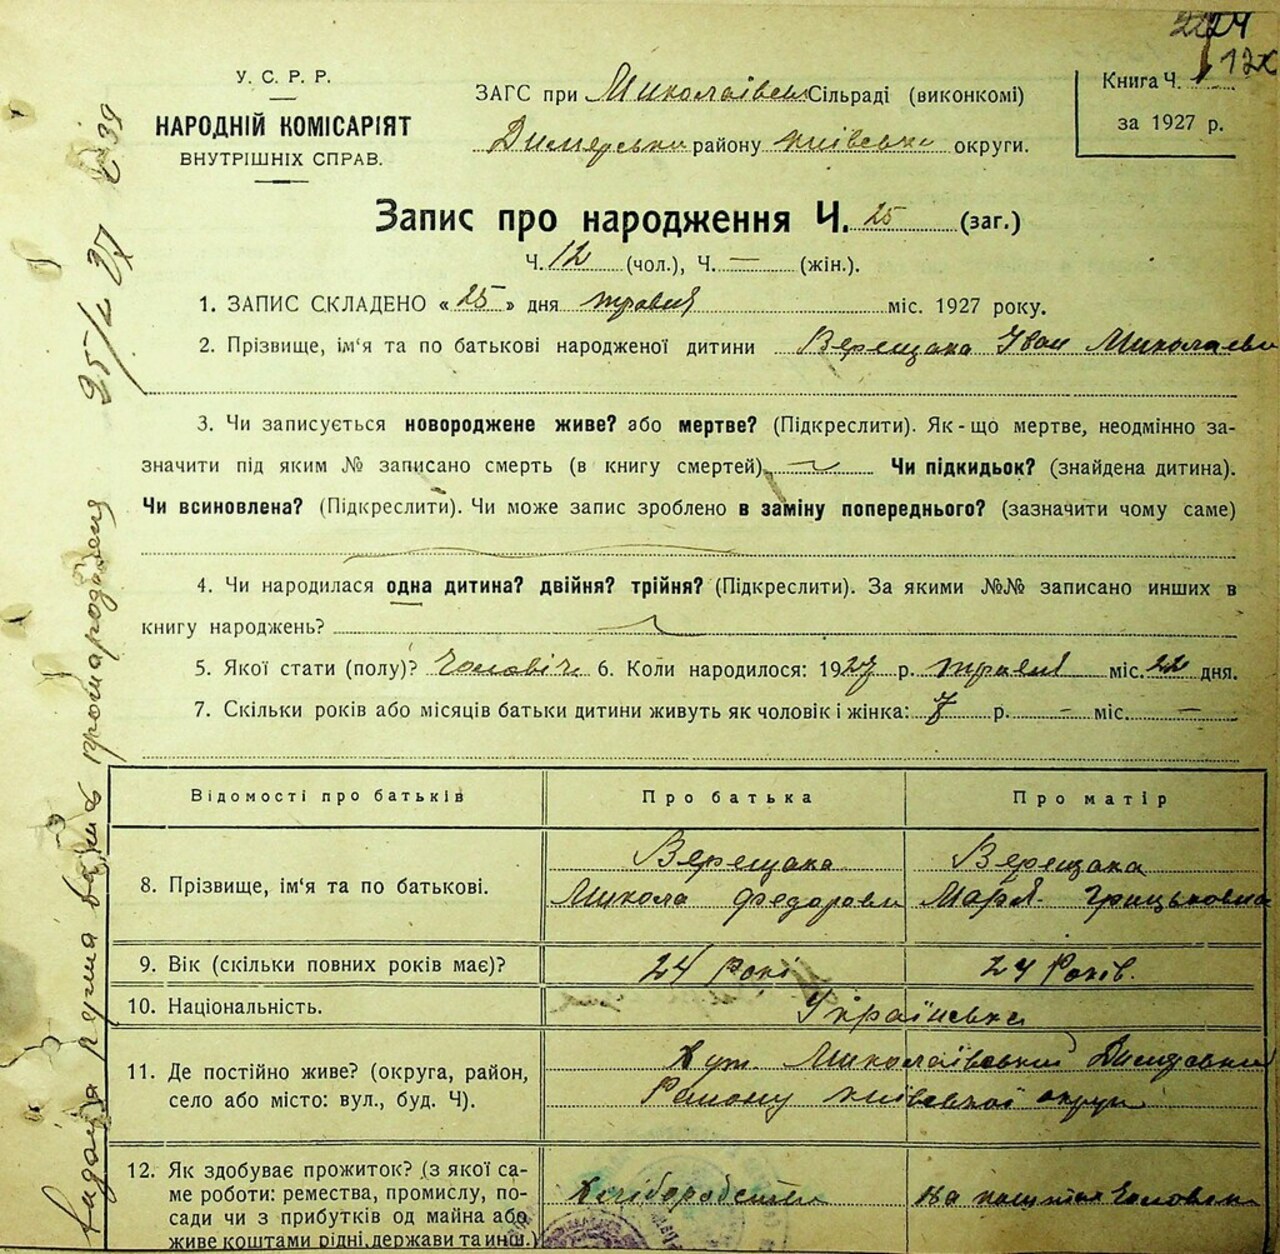 24
У. С. Р. Р.
НАРОДНІЙ КОМІСАРІЯТ
ВНУТРІШНІХ СПРАВ.
ЗАГС при Миколаївськ Сільраді (виконкомі)
Димерськи району київськи округи.
Книга Ч.
за 1927 р.
Запис про народження Ч. 25 (заг.)
Ч. 12 (чол.), Ч. — (жін.).
1. ЗАПИС СКЛАДЕНО « 25 » дня травня міс. 1927 року.
2. Прізвище, ім‘я та по батькові народженої дитини Верещака Іван Миколаєви
3. Чи записується новороджене живе? або мертве? (Підкреслити). Як-що мертве, неодмінно за-
значити під яким № записано смерть (в книгу смертей) Чи підкидьок? (знайдена дитина).
Чи всиновлена? (Підкреслити). Чи може запис зроблено в заміну попереднього? (зазначити чому саме)
4. Чи народилася одна дитина? двійня? трійня? (Підкреслити). За якими №№ записано инших в
книгу народжень?
5. Якої стати (полу)? Чоловіч. 6. Коли народилося: 1927 р. травня міс. 22 дня.
7. Скільки років або місяців батьки дитини живуть як чоловік і жінка: 7 р. — міс. —
Відомості про батьків Про батька Про матір
8. Прізвище, ім‘я та по батькові.
Верещака
Микола Федорови
Верещака
Марія Грицьковна
9. Вік (скільки повних років має)? 24 Рокі 24 Років.
10. Національність. Українська
11. Де постійно живе? (округа, район,
село або місто: вул., буд. Ч).
Хут. Миколаївський Димерський
Району київської округи
12. Як здобуває прожиток? (з якої са-
ме роботи: ремества, промислу, по-
сади чи з прибутків од майна або
живе коштами рідні, держави та инш.)
Хліборобство
На коштах Чоловека